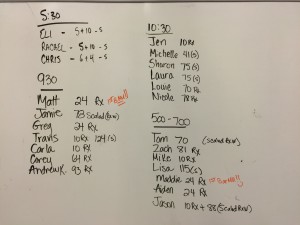 5:30
ELI - 5+10 - S
RACHEL - 5+10 - S
CHRIS - 6+4 - S
930
Matt 24 Rx
Jamie 78 Scaled Row
Greg 24 Rx
Travis 10 Rx 124(s)
Carla 10 Rx
Corey 64 Rx
Andrew K. 93 Rx
10:30
Jen 10 Rx
Michelle 41(s)
Sharon 75(s)
Laura 75(s)
Lowe 70 Rx
Nicole 78 Rx
500-700
Tom 70 (scaled Row)
Zach 81 Rx
Mike 10 Rx
Lisa 115(s)
Maddie 24 Rx
Aiden 24 Rx
Jason 10 Rx + 88 (Scaled Row)